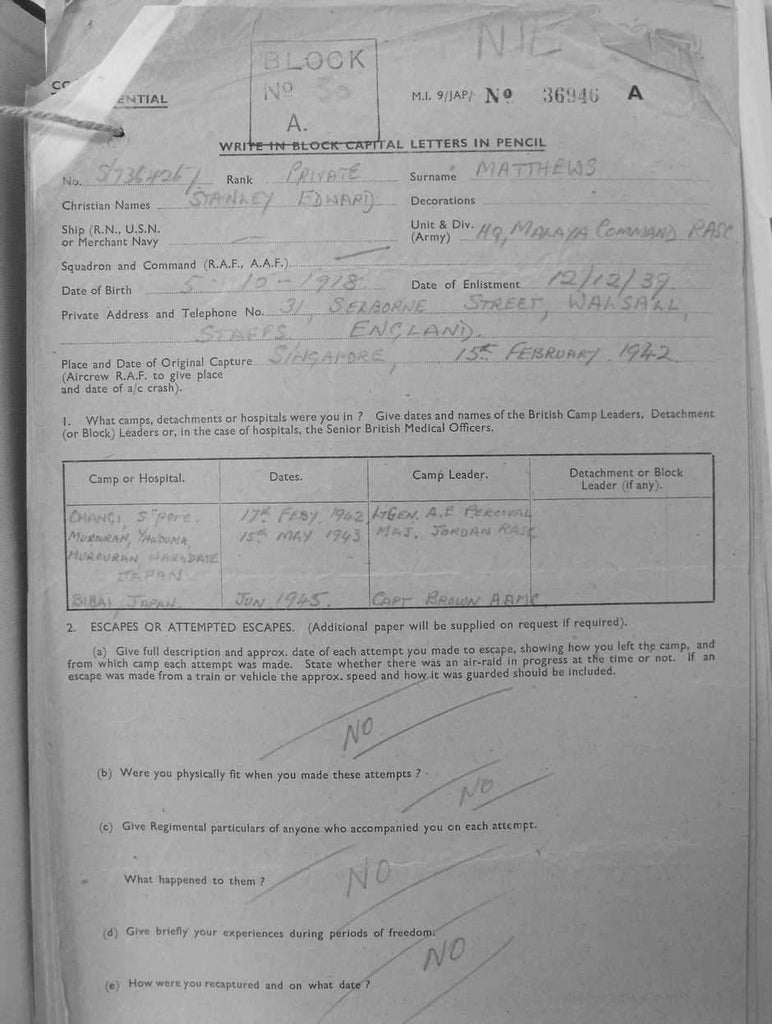 NIL
BLOCK
No
A.
CO ENTIAL
M.I. 9/JAP/ No 36946 A
WRITE IN BLOCK CAPITAL LETTERS IN PENCIL
No. S/7364267 Rank PRIVATE Surname MATTHEWS
Christian Names STANLEY EDWARD Decorations
Ship (R.N., U.S.N. or Merchant Navy — Unit & Div. (Army) HQ, MALAYA COMMAND RASC
Squadron and Command (R.A.F., A.A.F.)
Date of Birth 5-10-1918. Date of Enlistment 12/12/39.
Private Address and Telephone No. 31, SELBORNE STREET, WALSALL,
STAFFS ENGLAND.
Place and Date of Original Capture SINGAPORE, 15th FEBRUARY 1942
(Aircrew R.A.F. to give place
and date of a/c crash).
1. What camps, detachments or hospitals were you in ? Give dates and names of the British Camp Leaders, Detachment
(or Block) Leaders or, in the case of hospitals, the Senior British Medical Officers.
Camp or Hospital. Dates. Camp Leader. Detachment or Block
Leader (if any).
CHANGI, S"PORE. 17th FEBY. 1942 LTGEN. A.E PERCIVAL
MURORAN, 15th MAY 1943 MAJ. JORDAN RASC
MURORAN
JAPAN
BIBAI JAPAN JUN 1945. CAPT BROWN AAMC
2. ESCAPES OR ATTEMPTED ESCAPES. (Additional paper will be supplied on request if required).
(a) Give full description and approx. date of each attempt you made to escape, showing how you left the camp, and
from which camp each attempt was made. State whether there was an air-raid in progress at the time or not. If an
escape was made from a train or vehicle the approx. speed and how it was guarded should be included.
NO
(b) Were you physically fit when you made these attempts ?
NO
(c) Give Regimental particulars of anyone who accompanied you on each attempt.
What happened to them ?
NO
(d) Give briefly your experiences during periods of freedom.
NO
(e) How were you recaptured and on what date ?